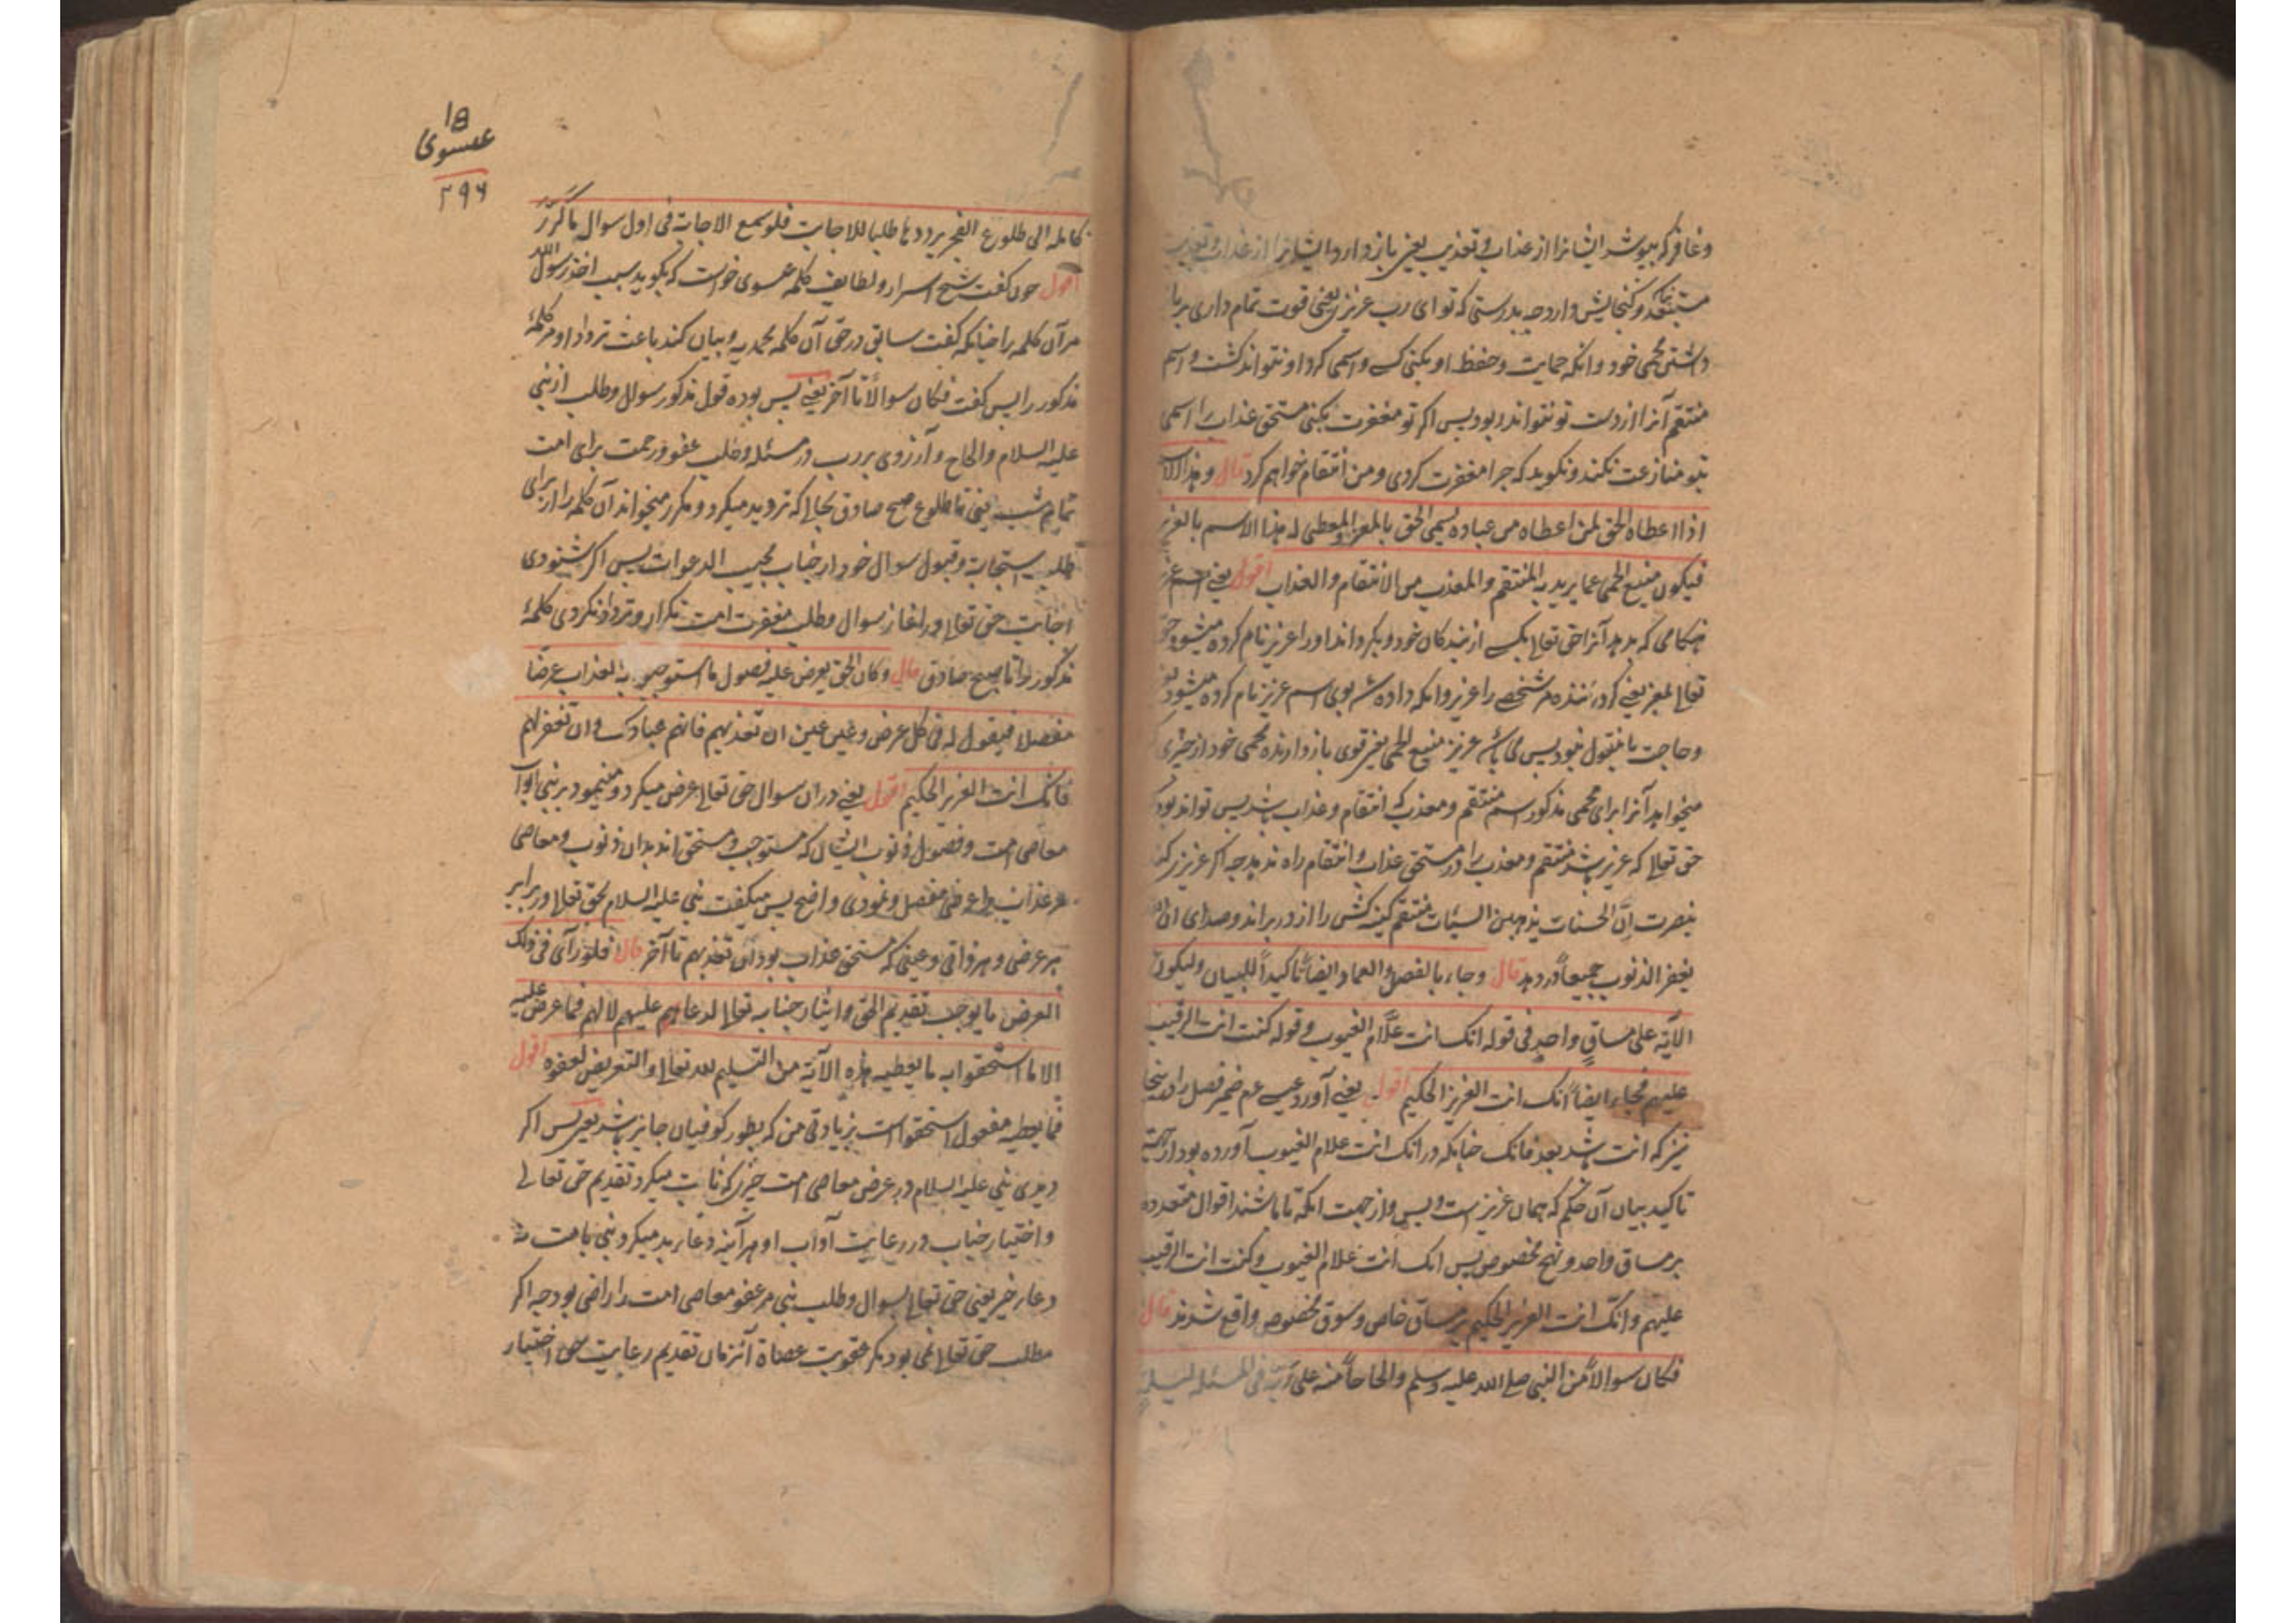 وغافر که بپوشد ایشانرا از عذاب و تعذیب یعنی باز دارد ایشانرا از عذاب و تعذیب
وگنجایش دارد چه بدرستی که تو ای رب عزیزی یعنی قوت تمام داری بر باز
داشتن محمی خود وانکه حمایت وحفظ او بکنی کسی واسمی کرد او نتواند کشت واسم
منتقم آنرا از دست تو نتواند ربود پس اگر تو مغفرت بکنی مستحق عذاب را اسمی
بتو منازعت نکند ونگوید که چرا مغفرت کردی ومن انتقام خواهم کرد قال وهذا الاسم
اذا اعطاه الحق لمن اعطاه من عباده یسمی الحق بالمعز والمعطی له هذا الاسم بالعزیز
فیکون منیع الحمی عما یرید به المنتقم والمعذب من الانتقام والعذاب اقول یعنی اسم عزیز
هنکامی که بدهد آنرا حق تعالی بیکی از بندکان خود وبگرداند او را عزیز نام کرده میشود حق
تعالی بمعز یعنی گرداننده مر شخصی را عزیز وانکه داده شد بوی اسم عزیز نام کرده میشود بعزیز
وحاجت بانقول نبود پس می باشد عزیز منیع الحمی یعنی قوی باز دارنده محمی خود از چیزی
میخواهد آنرا برای محمی مذکور اسم منتقم ومعذب که انتقام وعذاب باشد پس تواند بود
حق تعالی که عزیز باشد منتقم ومعذب را در مستحق عذاب وانتقام راه ندهد چه اگر عزیز رکن
بنصرت اِنَّ الحسنات یذهبن السیئات منتقم کینه کش را از در براند وصدای ان الله
یغفر الذنوب جمیعاً در دهد قال وجاء بالفصل والعماد ایضاً تأکیداً للبیان ولیکون
الآیة علی مساقٍ واحدٍ فی قوله انک انت علّام الغیوب وقوله کنت انت الرقیب
علیهم فجاء ایضاً انک انت العزیز الحکیم اقول یعنی آورد عیسی عم ضمیر فصل را در اینجا
نیز که انت باشد بعد فانک چنانکه در انک انت علام الغیوب آورده بود از جهت
تاکید بیان آن حکم که همان عزیز است وبس واز جهت انکه تا باشند اقوال متعدده
بر مساق واحد ونهج مخصوص پس انک انت علام الغیوب وکنت انت الرقیب
علیهم وانک انت العزیز الحکیم بر مساق خاص وسوق مخصوص واقع شدند قال
فکان سوالاً من النبی صلی الله علیه وسلم والحاحاً منه علی ربه فی المسئله لیلة
18
عیسوی
۲۹۶
کامله الی طلوع الفجر یرددها طلبا للاجابت فلو سمع الاجابة فی اول سوال ما کرّر
اقول چون گفت شیخ اسرار ولطایف کلمه عیسوی خواست که بگوید سبب اخذ رسول الله
مر آن کلمه را چنانکه گفت سابق در حق آن کلمه محمدیه وبیان کند باعث ترداد او مر کلمهٔ
مذکور را پس گفت فکان سوالاً تا آخر یعنی پس بوده قول مذکور سوال وطلب از نبی
علیه السلام والحاح وآرزوی بر رب در مسئله وطلب عفو ورحمت برای امت
تمام شب یعنی تا طلوع صبح صادق بحالی که تردید میکرد ومکرر میخواند آن کلمه را از برای
طلب استجابت وقبول سوال خود از جناب مجیب الدعوات پس اگر شنودی
اجابت حق تعالی در آغاز سوال وطلب مغفرت امت تکرار وترداد نکردی کلمهٔ
مذکور را تا صبح صادق قال وکان الحق یعرض علیه فصول ما استوجبوا به العذاب عرضاً
مفصلا فیقول له فی کل عرض وعین عین ان تعذبهم فانهم عبادک وان تغفر لهم
فانک انت العزیز الحکیم اقول یعنی دران سوال حق تعالی عرض میکرد ومینمود بر نبی ابواب
معاصی امت وفصول ذنوب ایشان که مستوجب ومستحق اند بدان ذنوب ومعاصی
مر عذاب را عرض مفصل ونمودی واضح پس میکفت نبی علیه السلام بحق تعالی در برابر
هر عرضی وهر ذاتی وعینی که مستحق عذاب بود ان تعذبهم تا آخر قال فلو رأی فی ذلک
العرض ما یوجب تقدیم الحق وایثار جنابه تعالی لدعا علیهم لا لهم فما عرض علیه
الا ما استحقوا به ما یعطیه هذه الآیة من التسلیم لله تعالی والتعریض لعفوه اقول
فما یعطیه مفعول استحقوا است بزیادتی من که بطور کوفیان جایز باشد یعنی پس اگر
دیدی نبی علیه السلام در عرض معاصی امت چیزی که ثابت میکرد تقدیم حق تعالی
واختیار جناب در رعایت آداب او هر آینه دعاء بد میکرد نبی بامت نه
دعاء خیر یعنی حق تعالی بسوال وطلب نبی مر عفو معاصی امت را راضی بود چه اگر
مطلب حق تعالی نمی بود مگر عقوبت عصاة آنزمان تقدیم رعایت حق اختیار